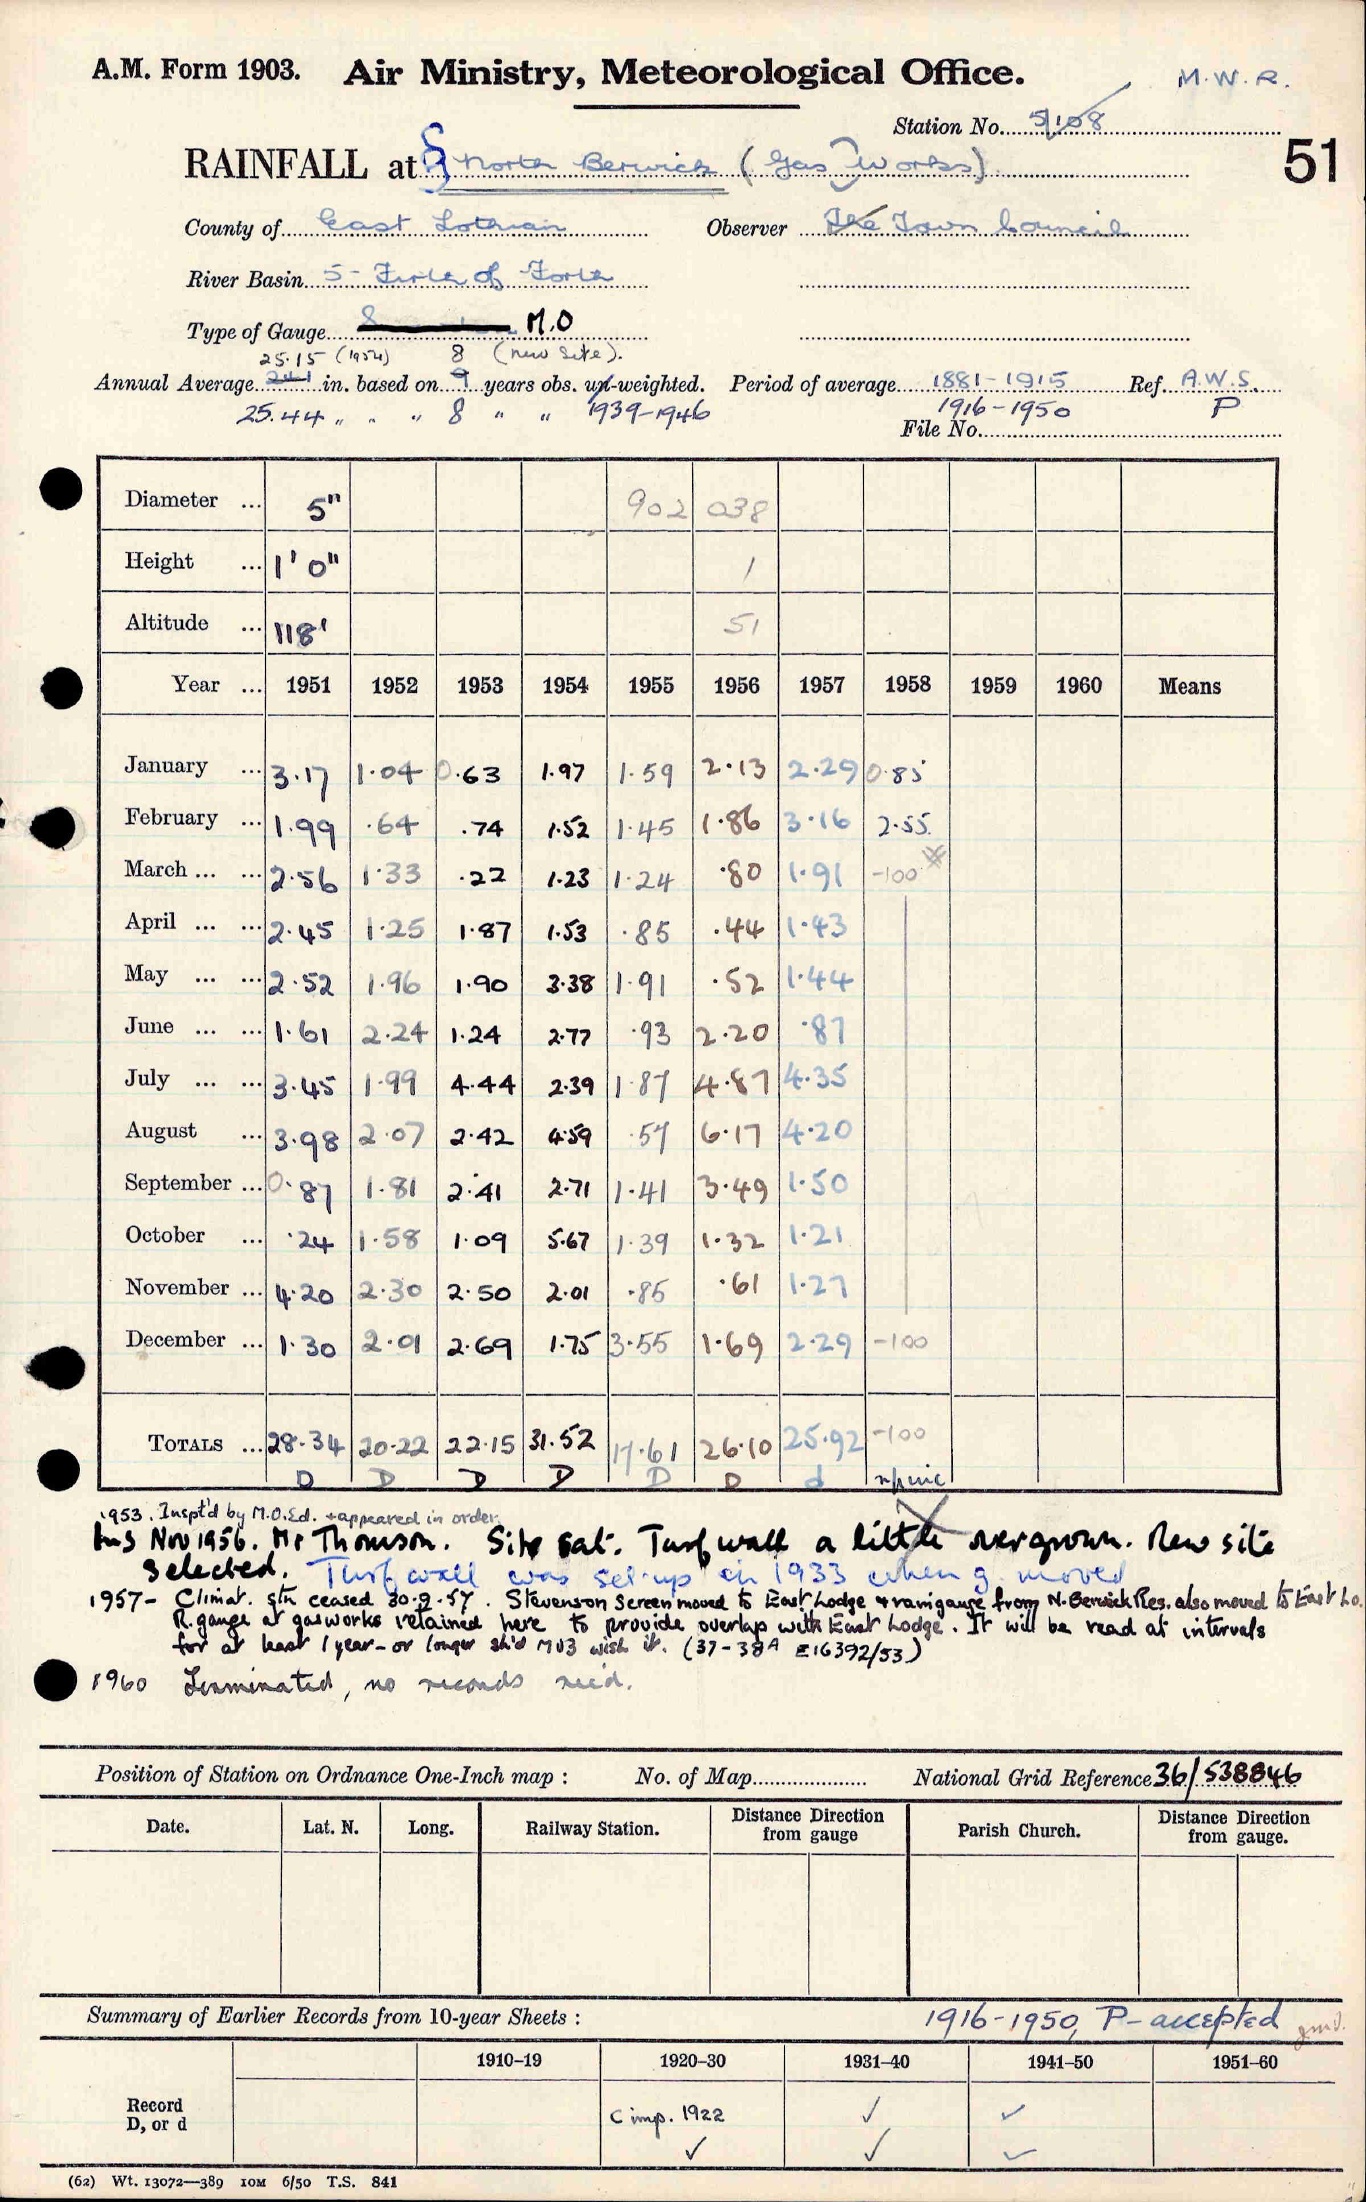 A.M. Form 1903. Air Ministry, Meteorological Office. M.W.R.
Station No. 5/108
RAINFALL at North Berwick (Gas Works) 51
County of East Lothian Observer The Town Council
River Basin 5 - Firth of Forth
Type of Gauge M.O
25.15 (1954) 8 (new site).
Annual Average 24.1 in. based on 9 years obs. un-weighted. Period of average 1881-1915 Ref. A.W.S.
25.44 " " " 8 " " 1939-1946 1916-1950 P
File No.
Diameter ... 5" 902 038
Height ... 1' 0" 1
Altitude ... 118' 51
Year ... 1951 1952 1953 1954 1955 1956 1957 1958 1959 1960 Means
January ... 3.17 1.04 0.63 1.97 1.59 2.13 2.29 0.85
February ... 1.99 .64 .74 1.52 1.45 1.86 3.16 2.55
March ... ... 2.56 1.33 .22 1.23 1.24 .80 1.91 -100
April ... ... 2.45 1.25 1.87 1.53 .85 .44 1.43
May ... ... 2.52 1.96 1.90 3.38 1.91 .52 1.44
June ... ... 1.61 2.24 1.24 2.77 .93 2.20 .87
July ... ... 3.45 1.99 4.44 2.39 1.87 4.87 4.35
August ... 3.98 2.07 2.42 4.59 .57 6.17 4.20
September ... 0.87 1.81 2.41 2.71 1.41 3.49 1.50
October ... .24 1.58 1.09 5.67 1.39 1.32 1.21
November ... 4.20 2.30 2.50 2.01 .85 .61 1.27
December ... 1.30 2.01 2.69 1.75 3.55 1.69 2.29 -100
TOTALS ... 28.34 20.22 22.15 31.52 17.61 26.10 25.92 -100
D D D D D D d
1953. Inspt'd by M.O.Ed. + appeared in order.
Ins Nov 1956. Mr Thomson. Site sat. Turf wall a little overgrown. New site
selected. Turf wall was set up in 1933 when g. moved
1957 - Climat. stn ceased 30.9.57. Stevenson Screen moved to East Lodge & raingauge from N. Berwick Res. also moved to East Lo.
R. gauge at gasworks retained here to provide overlap with East Lodge. It will be read at intervals
for at least 1 year - or longer sh'd M03 wish it. (37-38A E16392/53)
1960 Terminated, no records rec'd.
Position of Station on Ordnance One-Inch map : No. of Map National Grid Reference 36/538846
Date. Lat. N. Long. Railway Station. Distance Direction from gauge Parish Church. Distance Direction from gauge.
Summary of Earlier Records from 10-year Sheets : 1916-1950, P-accepted
1910-19 1920-30 1931-40 1941-50 1951-60
Record
D, or d
C imp. 1922 ✓ ✓
✓ ✓ ✓
(62) Wt. 13072—389 10M 6/50 T.S. 841